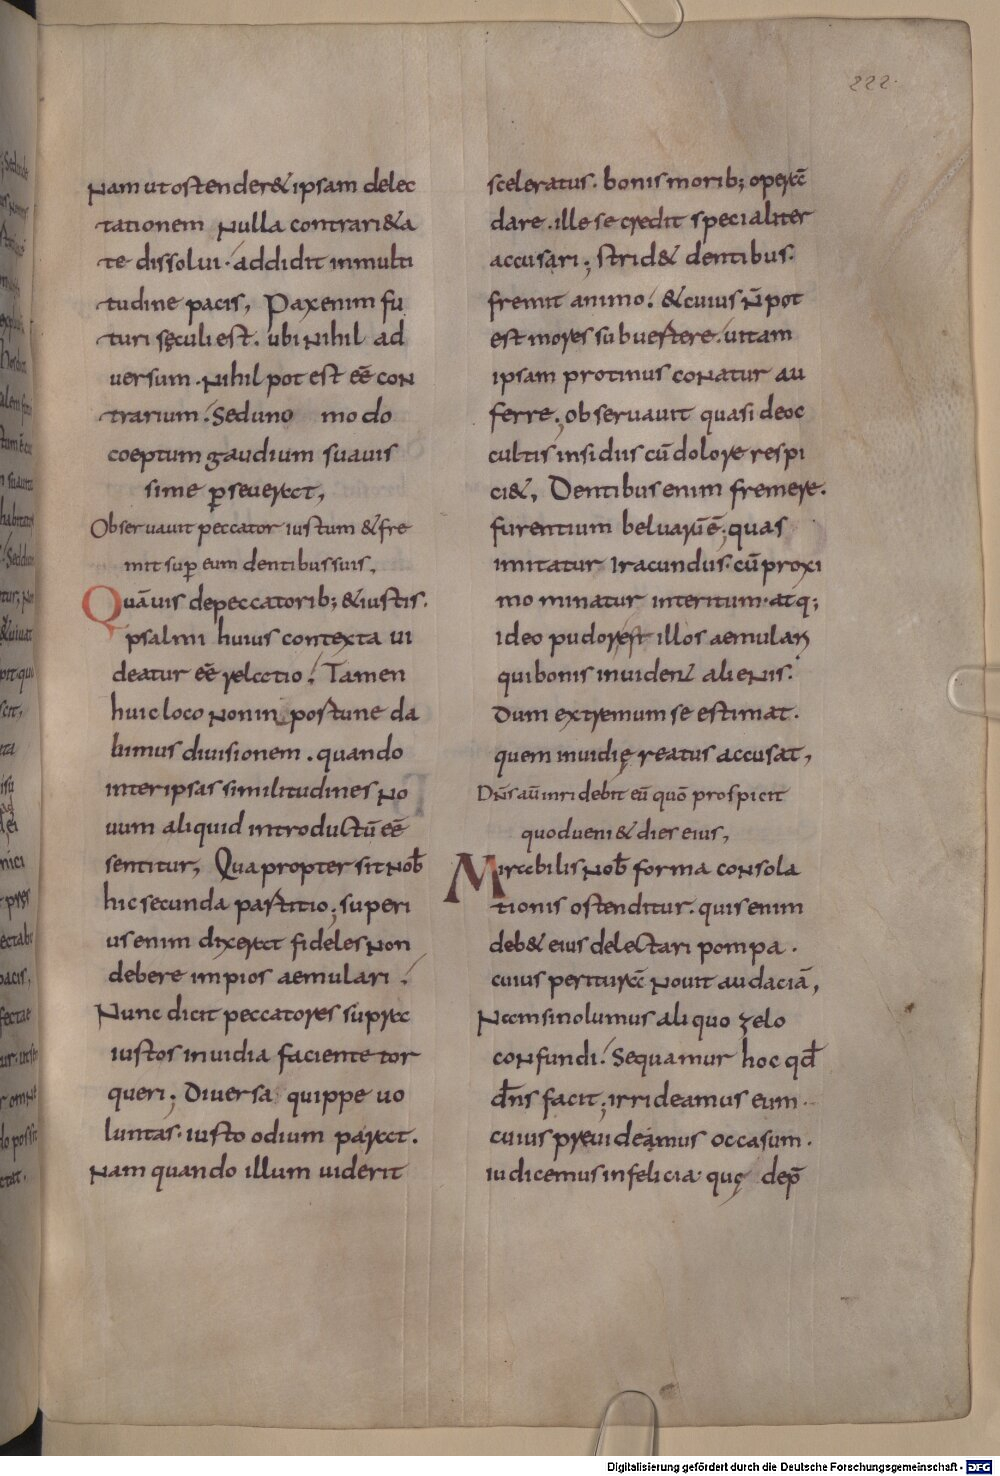 222.
Nam ut ostender& ipsam delec
tationem Nulla contrari&a
te dissolui. addidit in multi
tudine pacis, Pax enim fu
turi sęculi est. ubi Nihil ad
uersum. Nihil pot est eē coN
trarium. Sed uno modo
coeptum gaudium suauis
sime ꝑseuerect,
Obseruauit peccator iustum & fre
mit suꝑ eum dentibus suis,
Quāuis de peccatorib; & iustis.
psalmi huius contexta ui
deatur eē relectio. Tamen
huic loco Non in postune da
bimus diuisionem. quando
inter ipsas similitudines No
uum aliquid introductū eē
sentitur, Quapropter sit Nob̄
hic secunda partitio; superi
us enim dixerect fideles Non
debere impios aemulari.
Nunc dicit peccatores suprec
iustos inuidia faciente tor
queri; Diuersa quippe uo
luntas. iusto odium parect.
Nam quando illum uiderit
sceleratus. bonis morib; operec̄
dare. ille se credit specialiter
accusari; strid& dentibus.
fremit animo. & cuius N̄ pot
est mores subuertere. uitam
ipsam protinus coNatur au
ferre; obseruauit quasi de oc
cultis insidiis cū dolore respi
ci&, Dentibus enim fremere.
furentium beluarū ē; quas
imitatur Iracundus. cū proxi
mo minatur interitum. atq;
ideo pudor est illos aemulari
qui bonis inuident alieNis.
Dum extremum se estimat.
quem inuidię reatus accusat,
Dn̄s aū inridebit eū quō prospicit
quod ueni& dies eius,
Mirecbilis Nob̄ forma coNsola
tionis ostenditur. quis enim
deb& eius delectari pompa.
cuius periturec̄ Nouit audaciā,
Necm si nolumus aliquo zelo
coNfundi. Sequamur hoc qd̄
dn̄s facit; irrideamus eum.
cuius preuideamus occasum.
iudicemus infelicia quę dep̄
Digitalisierung gefördert durch die Deutsche Forschungsgemeinschaft - DFG